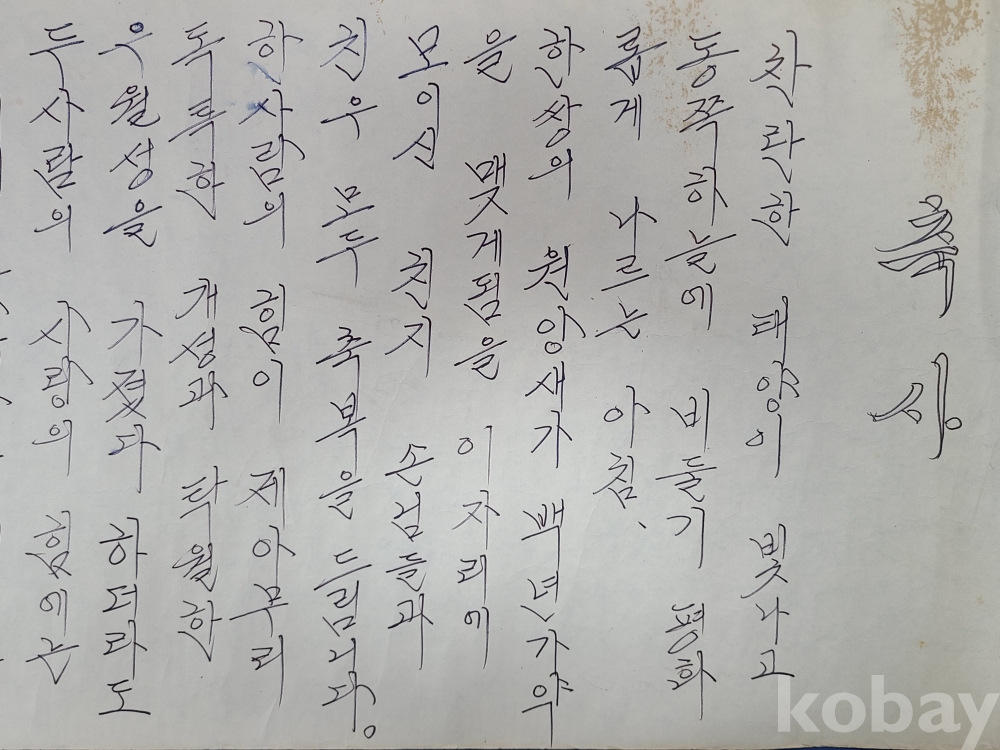 축 시
찬란한 태양이 빛나고
동쪽하늘에 비둘기 평화
롭게 나르는 아침、
한쌍의 원앙새가 백년가약
을 맺게됨을 이자리에
모이신 친지 손님들과
친우 모두 축복을 드립니다。
한사람의 힘이 제아무리
독특한 개성과 탁월한
우월성을 가졌다 하더라도
두사람의 사랑의 힘에는
kobay